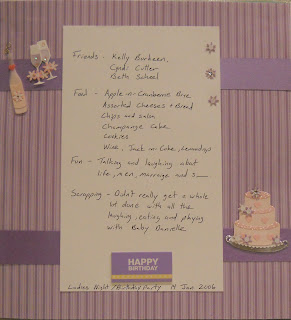 Friends - Kelly Burkeen,
Cyndi Cutler
Beth School
Food - Apple-in-Cranberries Brie
Assorted Cheeses & Bread
Chips and salsa
Champange Cake
Cookies
Wine, Jack-in-Coke, Lemondrops
Fun - Talking and laughing about
life, men, marriage and s
Scrapping - Didn't really get a whole
lot done with all the
laughing, eating and playing
with Baby Danielle
HAPPY
BIRTHDAY
Ladies Night / Birthday Party Jan 2006